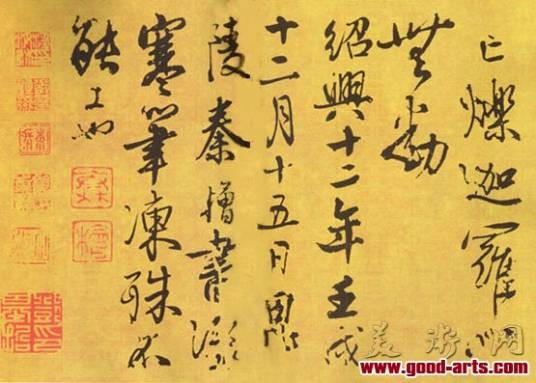 亡爍迦羅心
無動
紹興十二年壬戌
十二月十五日
陵秦檜書
寒筆凍殊不
能工也
美術网
www.good-arts.com